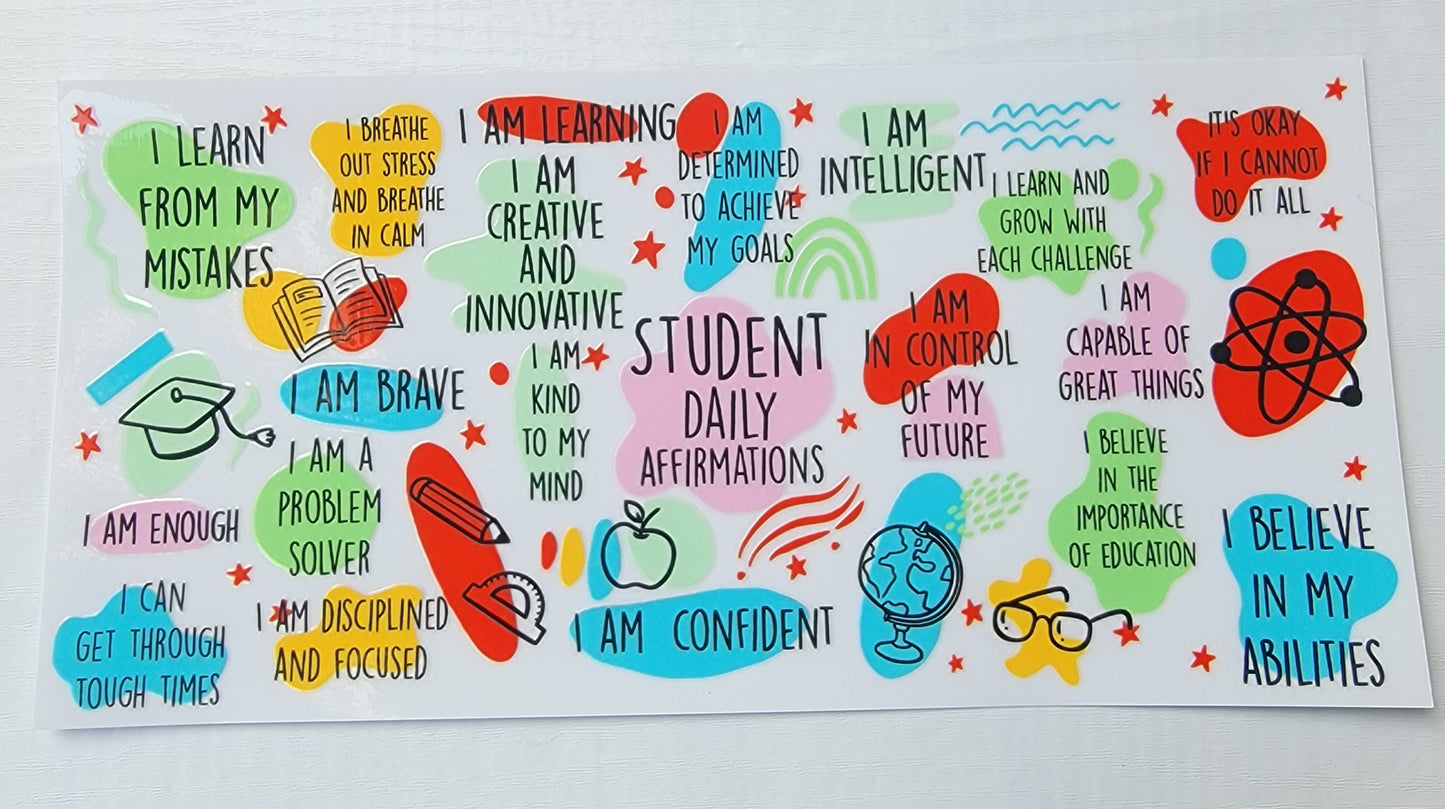 I LEARN
FROM MY
MISTAKES
I BREATHE
OUT STRESS
AND BREATHE
IN CALM
I AM LEARNING
I AM
CREATIVE
AND
INNOVATIVE
I AM
DETERMINED
TO ACHIEVE
MY GOALS
I AM
INTELLIGENT
I LEARN AND
GROW WITH
EACH CHALLENGE
IT'S OKAY
IF I CANNOT
DO IT ALL
I AM BRAVE
I AM
KIND
TO MY
MIND
STUDENT
DAILY
AFFIRMATIONS
I AM
IN CONTROL
OF MY
FUTURE
I AM
CAPABLE OF
GREAT THINGS
I AM ENOUGH
I AM A
PROBLEM
SOLVER
I BELIEVE
IN THE
IMPORTANCE
OF EDUCATION
I BELIEVE
IN MY
ABILITIES
I CAN
GET THROUGH
TOUGH TIMES
I AM DISCIPLINED
AND FOCUSED
I AM CONFIDENT